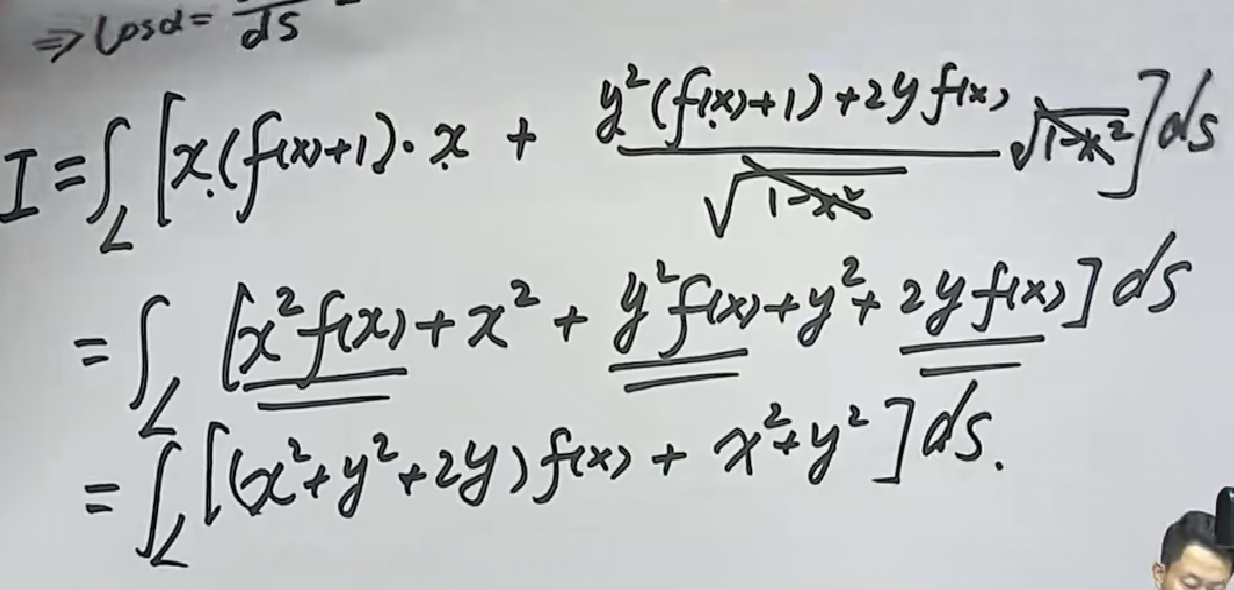 ⇒ cosα = ―/ds
I = ∫_L [x(f(x)+1)·x + (y²(f(x)+1)+2yf(x))/√(1-x²) √(1-x²)] ds
= ∫_L [x²f(x)+x²+y²f(x)+y²+2yf(x)] ds
= ∫_L [(x²+y²+2y)f(x) + x²+y²] ds.